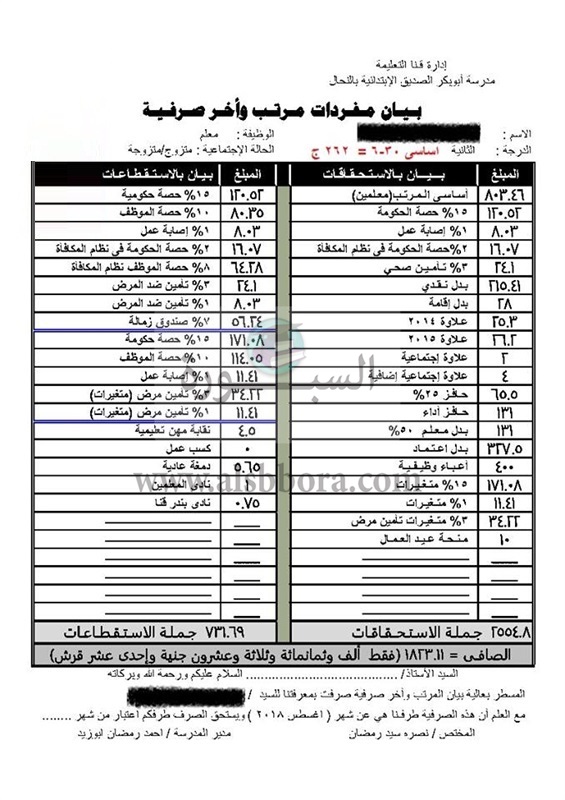 إدارة قنا التعليمة
مدرسة أبوبكر الصديق الإبتدائية بالنحال
بيان مفردات مرتب وأخر صرفية
الاسم :
الوظيفة : معلم
الدرجة : الثانية أساسى ٣٠-٦ = ٢٦٢ ج
الحالة الإجتماعية : متزوج/متزوجة
المبلغ بيان بالاستحقاقات المبلغ بيان بالاستقطاعات
٨٠٣.٤٦ أساسى المرتب(معلمين) ١٢٠.٥٢ ١٥% حصة حكومية
١٢٠.٥٢ ١٥% حصة الحكومة ٨٠.٣٥ ١٠% حصة الموظف
٨.٠٣ ١% إصابة عمل ٨.٠٣ ١% إصابة عمل
١٦.٠٧ ٢%حصة الحكومة فى نظام المكافأة ١٦.٠٧ ٢% حصة الحكومة فى نظام المكافأة
٢٤.١ ٣% تأمين صحي ٦٤.٢٨ ٨% حصة الموظف نظام المكافأة
٢١٥.٤١ بدل نقدي ٢٤.١ ٣% تأمين ضد المرض
٢٨ بدل إقامة ٨.٠٣ ١% تأمين ضد المرض
٢٥.٣ علاوة ٢٠١٤ ٥٦.٢٤ ٧% صندوق زمالة
٢٦.٢ علاوة ٢٠١٥ ١٧١.٠٨ ١٥% حصة حكومة
٢ علاوة إجتماعية ١١٤.٠٥ ١٠% حصة الموظف
٤ علاوة إجتماعية إضافية ١١.٤١ ١% إصابة عمل
٦٥.٥ حافز ٢٥% ٣٤.٢٢ ٣% تأمين مرض (متغيرات)
١٣١ حافز أداء ١١.٤١ ١% تأمين مرض (متغيرات)
١٣١ بدل معلم ٥٠% ٤.٥ نقابة مهن تعليمية
٣٢٧.٥ بدل اعتماد ٠ كسب عمل
٤٠٠ أعباء وظيفية ٥.٦٥ دمغة عادية
١٧١.٠٨ ١٥% متغيرات نادى المعلمين
١١.٤١ ١% متغيرات ٠.٧٥ نادى بندر قنا
٣٤.٢٢ ٣% متغيرات تأمين مرض
١٠ منحة عيد العمال
٢٥٥٤.٨ جملة الاستحقاقات ٧٣١.٦٩ جملة الاستقطاعات
الصافى = ١٨٢٣.١١ (فقط ألف وثمانمائة وثلاثة وعشرون جنهة وإحدى عشر قرش)
السيد الأستاذ/ .................... السلام عليكم ورحمة الله وبركاته
المسطر بعالية بيان المرتب وأخر صرفية صرفت بمعرفتنا للسيد /
مع العلم أن هذه الصرفية طرفنا هي عن شهر ( اغسطس ٢٠١٨ ) ويستحق الصرف طرفكم اعتبار من شهر ........
المختص / نصره سيد رمضان مدير المدرسة / احمد رمضان ابوزيد
السبورة
www.alsbbora.com